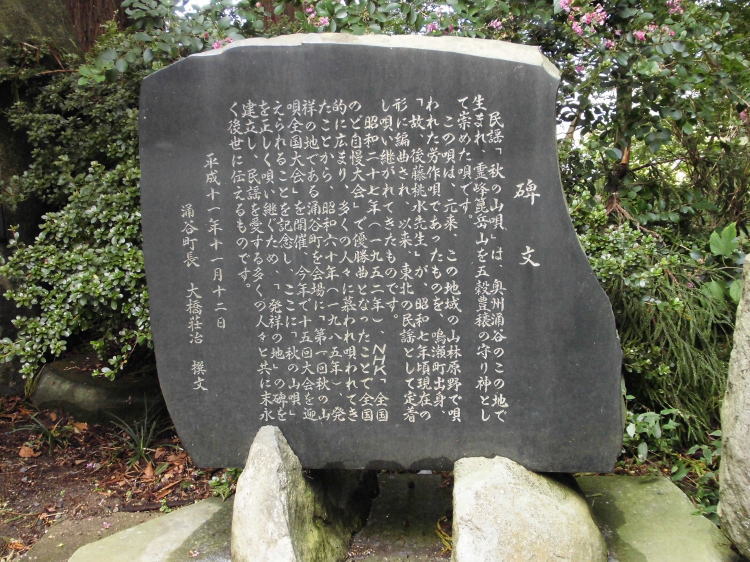 碑文
民謡「秋の山唄」は、奥州涌谷のこの地で
生まれ、霊峰箟岳山を五穀豊穣の守り神とし
て崇めた唄です。
この唄は、元来、この地域の山林原野で唄
われた労作唄であったものを、鳴瀬町出身、
「故、後藤桃水先生」が、昭和七年頃現在の
形に編曲され、以来、東北の民謡として定着
し唄い継がれてきたものです。
昭和二十七年（一九五二年）、NHK「全国
のど自慢大会」で優勝曲となったことで全国
的に広まり、多くの人々に慕われ唄われてき
たことから、昭和六十年（一九八五年）、発
祥の地である涌谷町を会場に、「第一回秋の山
唄全国大会」を開催、今年で十五回大会を迎
えられることを記念し、ここに「秋の山唄」
を正しく唄い継ぐため、「発祥の地」の碑を
建立し、民謡を愛する多くの人々と共に末永
く後世に伝えるものです。
平成十一年十一月十二日
涌谷町長 大橋荘冶 撰文